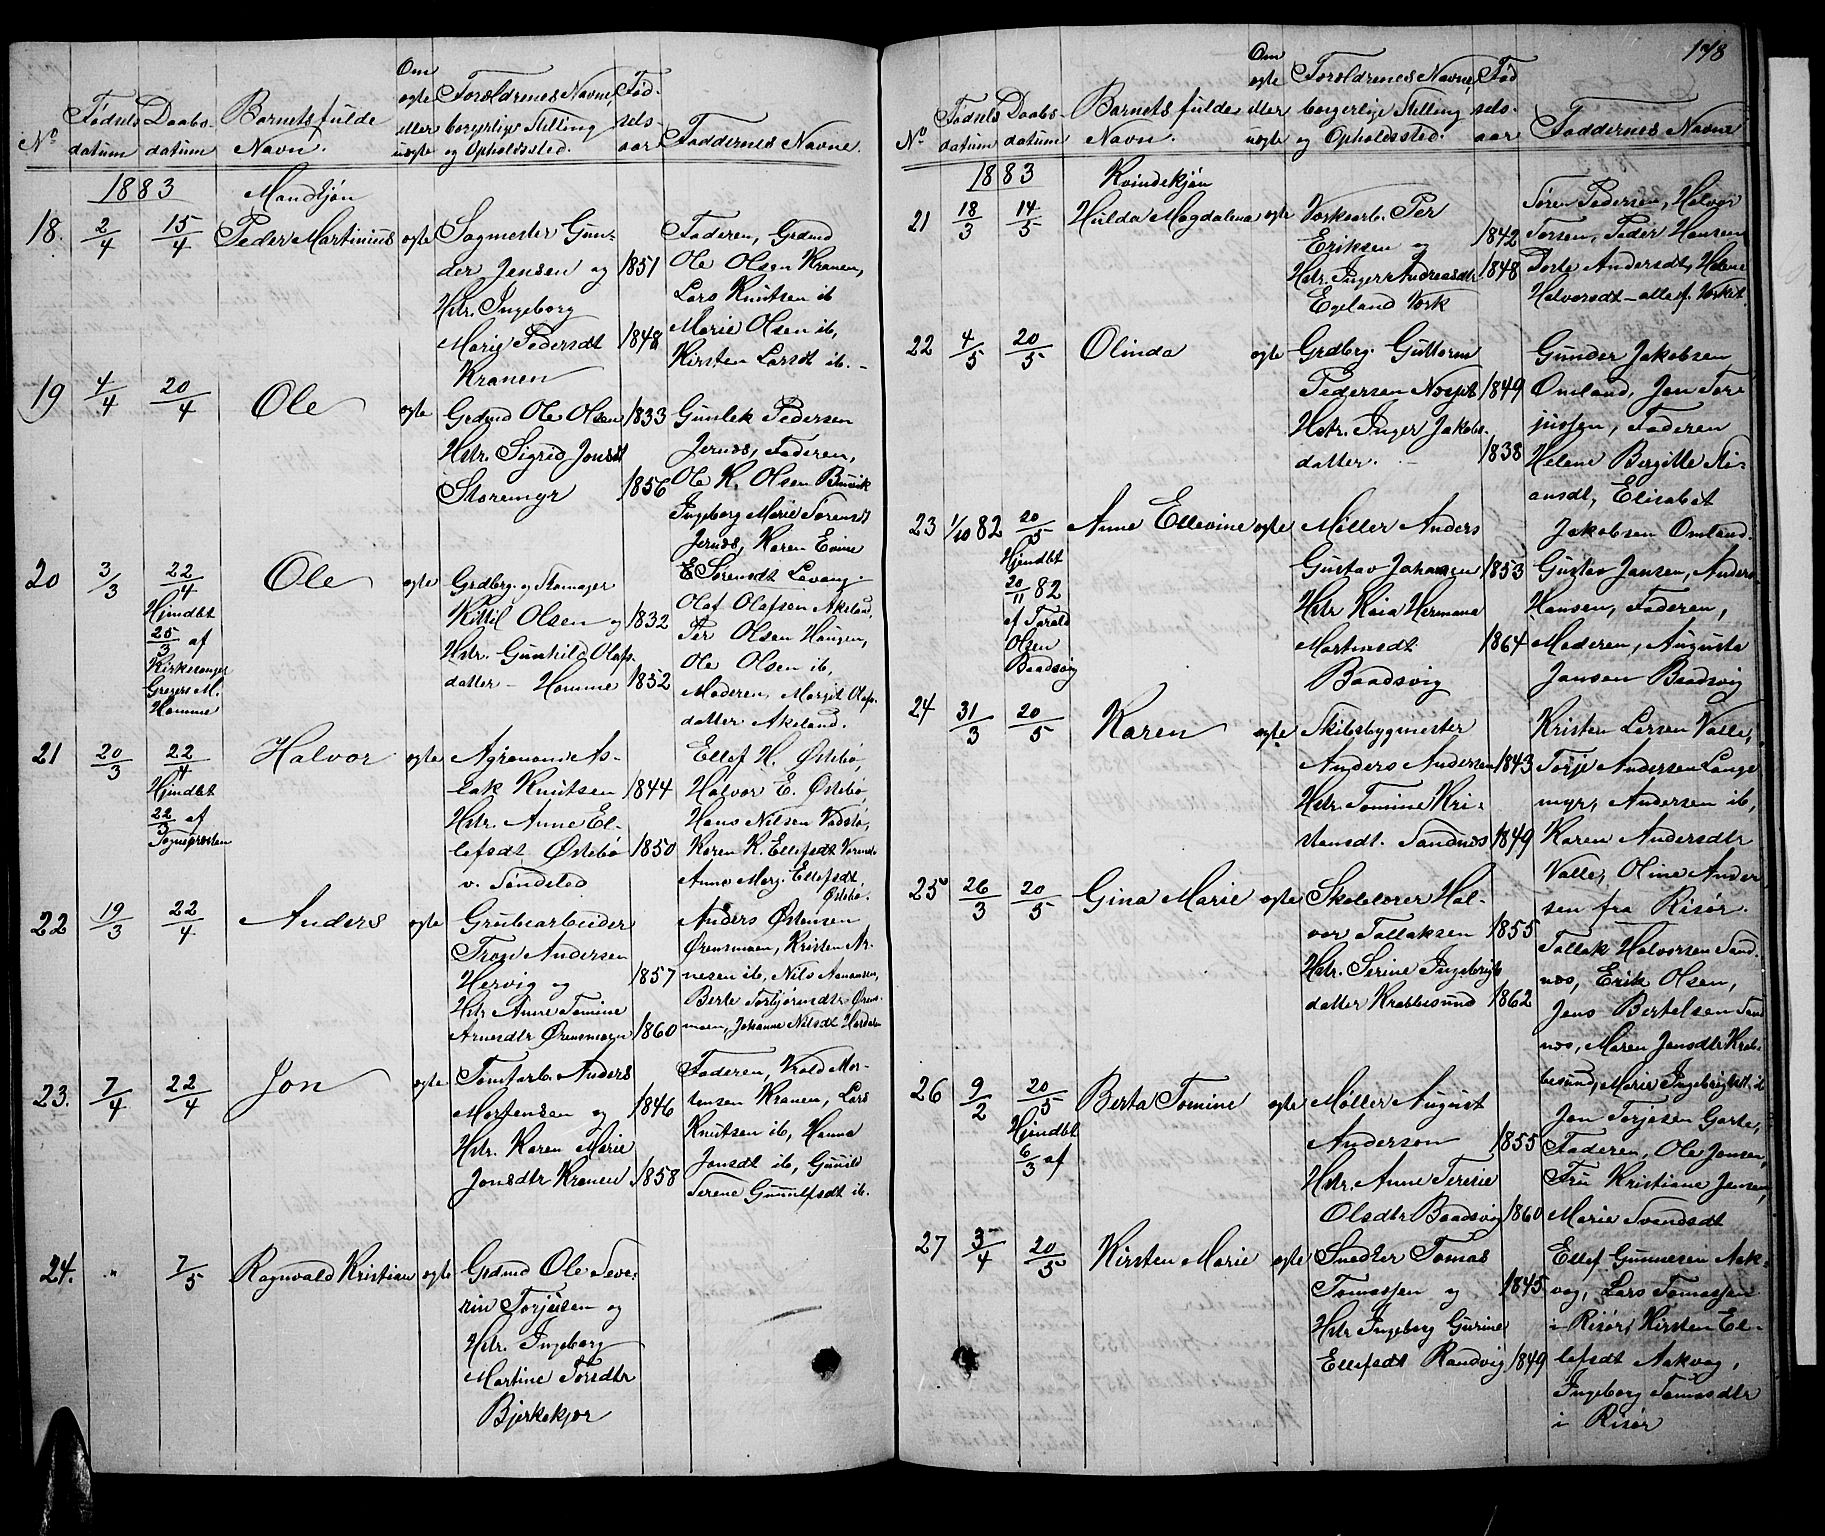 No Fødsels datum Daabs-datum Barnets fulde Navn. Om ægte eller uægte Forældrenes Navne, borgerlige Stilling og Opholdssted. Fødselsaar Faddernes Navne.
1883 Mandkjøn
18. 2/4 15/4 Peder Martinius ægte
Sagmester Gun-
der Jensen og 1851
Hstr. Ingeborg
Marie Pedersdt 1848
Kranen
Faderen, Grdmd
Ole Olsen Kranen,
Lars Knutsen ib
Marie Olsen ib,
Kirsten Larsdt ib.
19 4/4 20/4 Ole ægte
Grdmd Ole Olsen 1833
Hstr. Sigrid Jonsdt
Storemyr 1856
Gunlek Pedersen
Jernæs, Faderen,
Ole K. Olsen
Ingeborg Marie Sørensdt
Jernæs, Karen Evine
Sørensdt Lavang.
20 3/3 22/4 Ole ægte
Hjemdbt
25/3 af
Kirkesanger
Gregers M.
Homme
Grdbrg. og
Kittil Olsen og 1832
Hstr. Gunhild Olafs-
datter Homme 1852
Olaf Olafsen Akeland,
Per Olsen Haugen,
Ole Olsen ib,
Moderen, Margit Olafs-
datter Akeland.
21 20/3 22/4 Halvor ægte
Hjemdbt
22/3 af
Sognepresten
Agronom As-
lak Knutsen 1844
Hstr. Anne El-
lefsdt Østebø 1850
v. Søndeled
Ellef H. Østebø,
Halvor E. Østebø,
Hans Nilsen
Karen K. Ellefsdt
Anne Marg. Ellefsdt
Østebø.
22 19/3 22/4 Anders ægte
Grubearbeider
Andersen
Hervig og 1857
Hstr Anne Tomine
Arnesdtr Ørensmoen 1860
Anders Østensen
Ørensmoen, Kristen Ar-
nesen ib, Nils Aanonsen,
Berte Torbjørnsdtr Ørens-
moen, Johanne Nilsdt
23. 7/4 22/4 Jon ægte
Tomtarb. Anders
Mortensen og 1846
Hstr. Karen Marie
Jonsdtr Kranen 1858
Faderen, Vrold Mor-
tensen Kranen, Lars
Knutsen ib, Hanna
Jonsdt ib, Gunild
Serene Gunulfsdt ib.
24. " 7/5 Ragnvald Kristian ægte
Grdmd Ole Seve-
rin Torjusen og
Hstr. Ingeborg
Martine Torsdtr
Bjerkekjær
178
No Fødsels datum Daabs-datum Barnets fulde Navn. Om ægte eller uægte Forældrenes Navne, borgerlige Stilling og Opholdssted. Fødselsaar Faddernes Navne
1883 Kvindekjøn
21 18/3 14/5 Hulda Magdalena ægte
Værksarb. Per
Eriksen og 1842
Hstr. Inger Andreasdt 1848
Egeland Værk
Søren Pedersen, Halvor
Torsen, Peder Hansen
Andersdt, Helene
Halvorsdt alle f. Værket
22 4/5 20/5 Olinda ægte
Grdbrg. Guttorm
Pedersen 1849
Hstr. Inger Jakobs-
datter. 1838
Gunder Jakobsen
Omland, Jon Tor-
jussen, Faderen
Helene Bergitte Sti-
ansdt, Elisabet
Jakobsen Omland.
23 1/10 82 20/5 Anne Ellevine ægte
Hjemdbt
20/11 82
af Torald
Olsen
Baadsvig
Møller Anders
Gustav Johansen 1853
Hstr Kaia Hermana
Martinsdt 1864
Baadsvig
Gustav Jansen, Anders
Hansen, Faderen,
Moderen, Auguste
Jansen Baadsvig
24 31/3 20/5 Karen ægte
Skibsbygmester
Anders Andersen 1843
Hstr. Tomine Kri-
stensdt. Sandnæs 1849
Kristen Larsen Valle,
Torje Andersen Lange
myr, Andersen ib,
Karen Andersdtr
Valle, Oline Ander
sen fra Risør.
25 26/3 20/5 Gina Marie ægte
Skolelærer Hal-
vor Tallaksen 1855
Hstr. Serine Ingebrigts
datter Krabbesund 1862
Tallak Halvorsen Sand-
næs, Erik Olsen,
Jens Bertelsen Sand
næs, Maren Jonsdtr Krab-
besund, Marie Ingebrigtsdt ib
26 9/2 20/5 Berta Tomine ægte
Hjemdbt
6/3 af
Møller August
Anderson 1855
Hstr. Anne Teresie
Olsdtr Baadsvig 1860
Jon Torjesen Garta,
Faderen, Ole Jonsen,
Fru Kristiane Jensen,
Marie Svendsdt
27 3/4 20/5 Kirsten Marie ægte
Snedker Tomas
Tomassen og 1845
Hstr Ingeborg Gurine
Ellefsdt Randvig 1849
Ellef Gunnesen Aak-
vag, Lars Tomassen
i Risør, Kirsten El-
lefsdt Aakvag,
Ingeborg Tomasdtr
i Risør